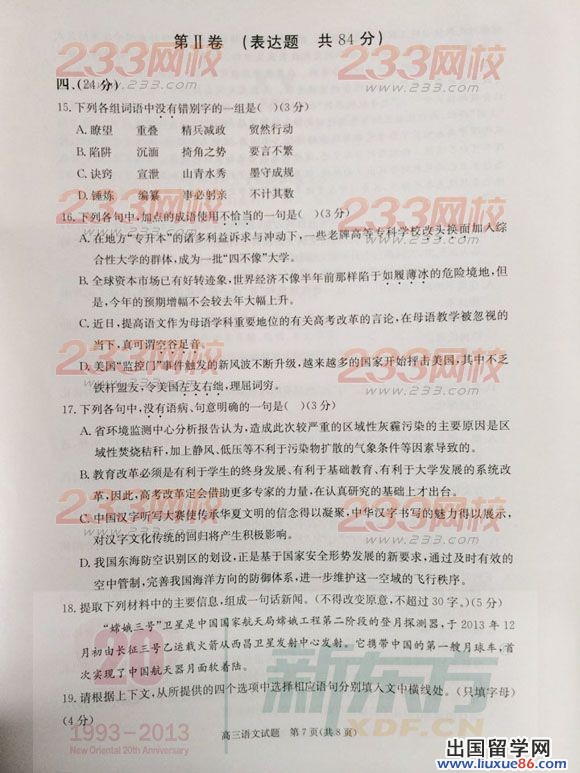 第Ⅱ卷 (表达题 共84分)
四、(24分)
15. 下列各组词语中没有错别字的一组是( )(3分)
A. 瞭望 重叠 精兵减政 贸然行动
B. 陷阱 沉湎 掎角之势 要言不繁
C. 诀窍 宣泄 山青水秀 墨守成规
D. 锤炼 编纂 事必躬亲 不计其数
16. 下列各句中,加点的成语使用不恰当的一句是( )(3分)
A. 在地方“专升本”的诸多利益诉求与冲动下,一些老牌高等专科学校改头换面加入综
合性大学的群体,成为一批“四不像”大学。
B. 全球资本市场已有好转迹象,世界经济不像半年前那样陷于如履薄冰的危险境地,但
是,今年的预期增幅不会较去年大幅上升。
C. 近日,提高语文作为母语学科重要地位的有关高考改革的言论,在母语教学被忽视的
当下,真可谓空谷足音。
D. 美国“监控门”事件触发的新风波不断升级,越来越多的国家开始抨击美国,其中不乏
铁杆盟友,令美国左支右绌,理屈词穷。
17. 下列各句中,没有语病、句意明确的一句是( )(3分)
A. 省环境监测中心分析报告认为,造成此次较严重的区域性灰霾污染的主要原因是区
域性焚烧秸秆,加上静风、低压等不利于污染物扩散的气象条件等因素导致的。
B. 教育改革必须是有利于学生的终身发展、有利于基础教育、有利于大学发展的系统改
革,因此,高考改革定会借助更多专家的力量,在认真研究的基础上才出台。
C. 中国汉字听写大赛使传承华夏文明的信念得以凝聚,中华汉字书写的魅力得以展示,
对汉字文化传统的回归将产生积极影响。
D. 我国东海防空识别区的划设,正是基于国家安全形势发展的新要求,通过及时有效的
空中管制,完善我国海洋方向的防御体系,进一步维护这一空域的飞行秩序。
18. 提取下列材料中的主要信息,组成一句话新闻。(不得改变原意,不超过30字。)(5分)
“嫦娥三号”卫星是中国国家航天局嫦娥工程第二阶段的登月探测器,于2013年12
月初由长征三号乙运载火箭从西昌卫星发射中心发射。它携带中国的第一艘月球车,首
次实现了中国航天器月面软着陆。
19. 请根据上下文,从所提供的四个选项中选择相应语句分别填入文中横线处。(只填字母)
(4分)
高三语文试题 第7页(共8页)
233网校
www.233.com
20
1993-2013
New Oriental 20th Anniversary
新东方
XDF.CN
出国留学网
www.liuxue86.com